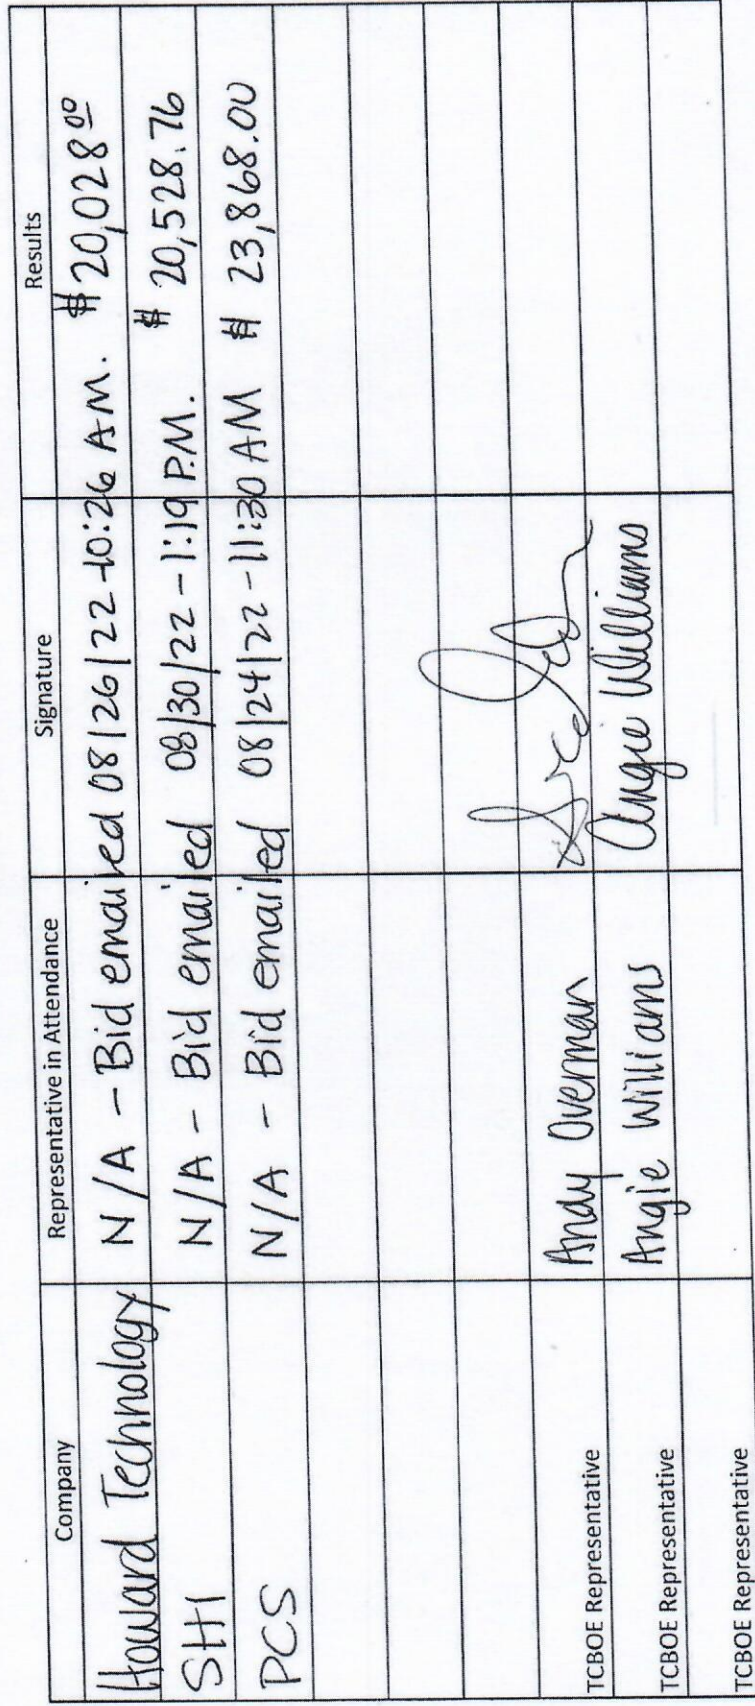 Company Representative in Attendance Signature Results
Howard Technology N/A - Bid emailed 08/26/22 - 10:26 A.M. $20,028.00
SHI N/A - Bid emailed 08/30/22 - 1:19 P.M. $20,528.76
PCS N/A - Bid emailed 08/24/22 - 11:30 AM $23,868.00
TCBOE Representative Andy Overman
TCBOE Representative Angie Williams Angie Williams
TCBOE Representative